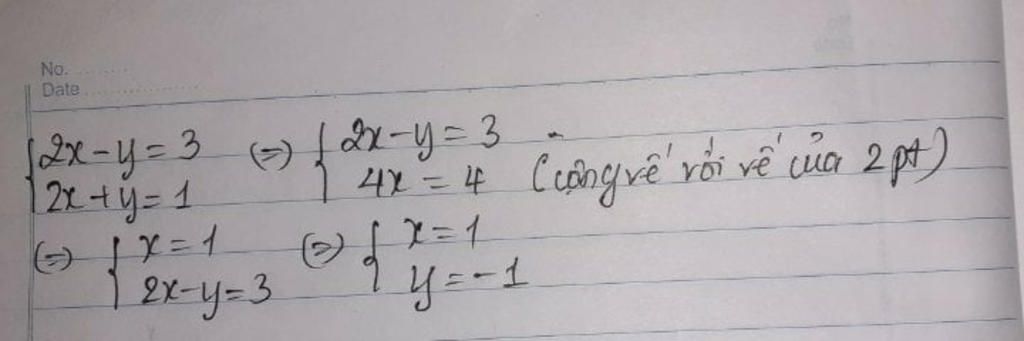 No. ............
Date ......................
{2x-y=3 (=) {2x-y=3
{2x+y=1 {4x=4 (cộng vế với vế của 2 pt)
(=) {x=1 (=) {x=1
{2x-y=3 {y=-1